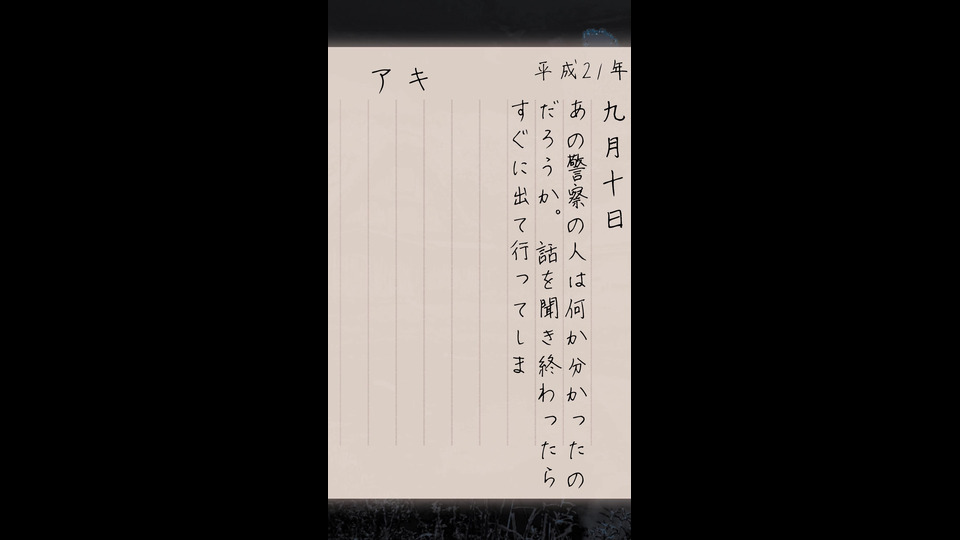 平成21年
アキ
九月十日
あの警察の人は何か分かったの
だろうか。話を聞き終わったら
すぐに出て行ってしま